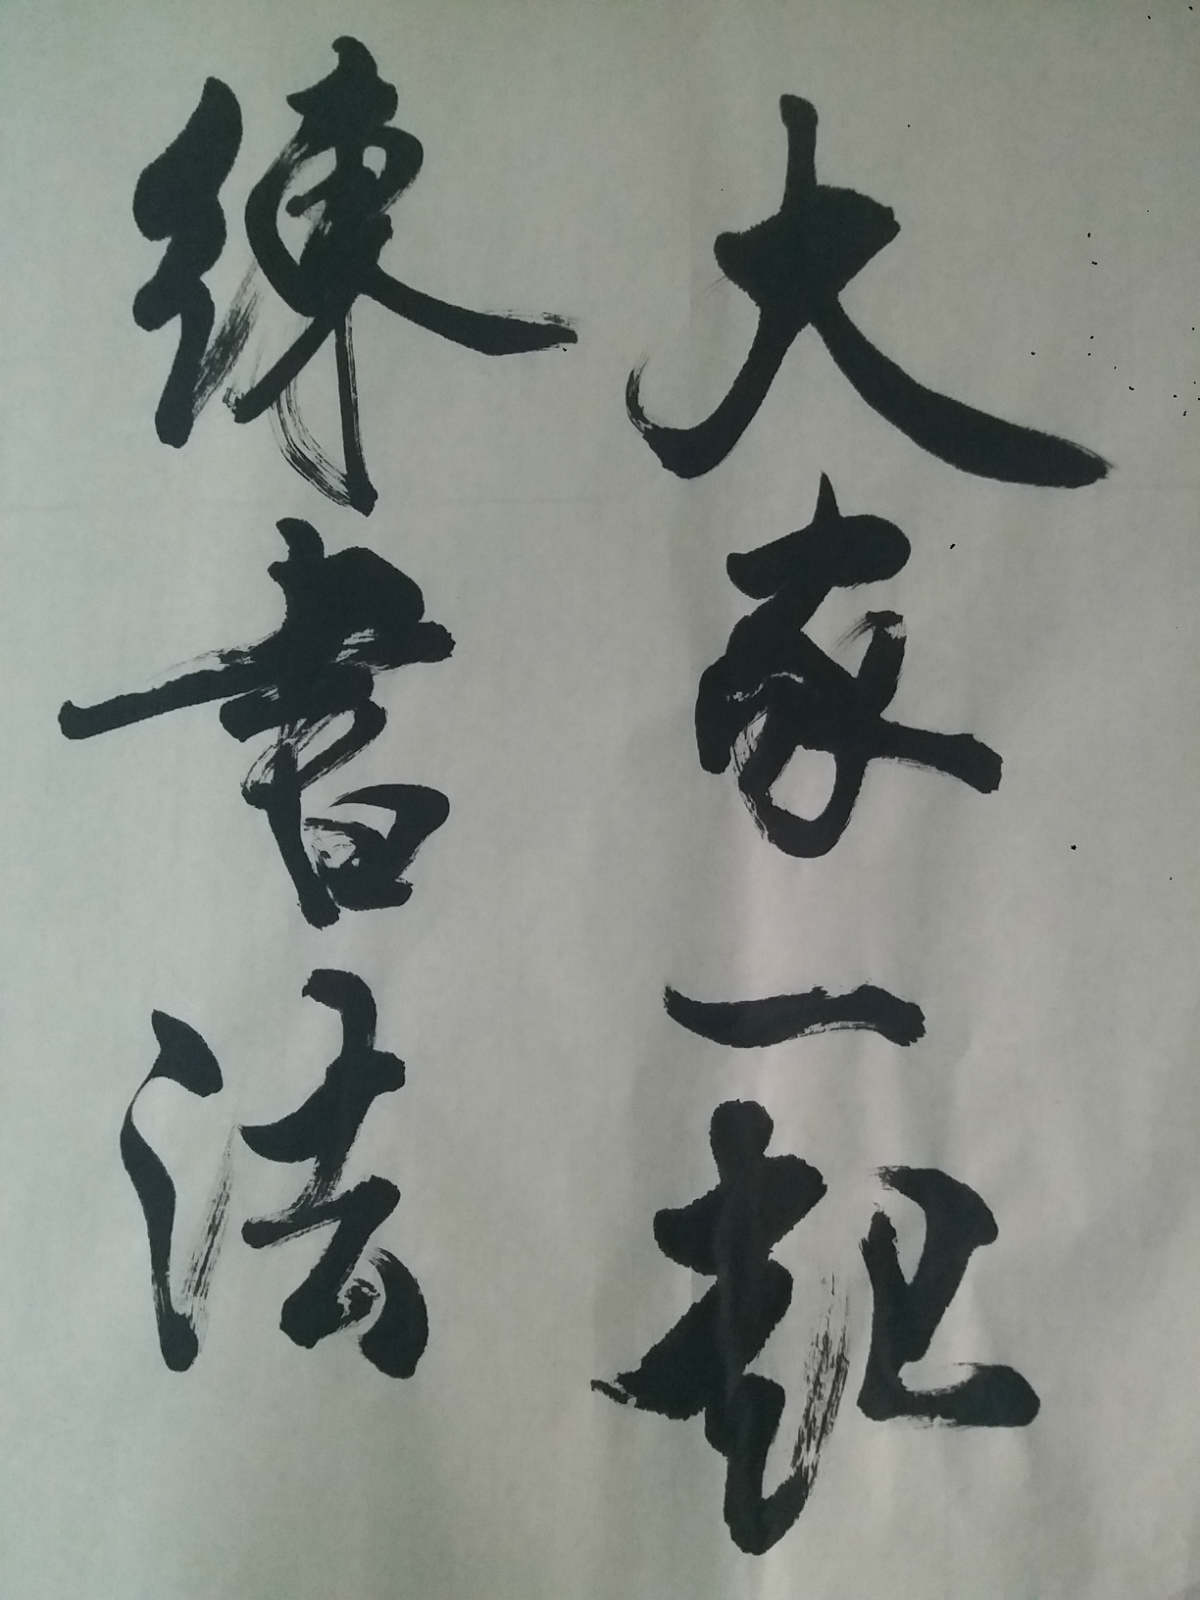 大家一起
練書法